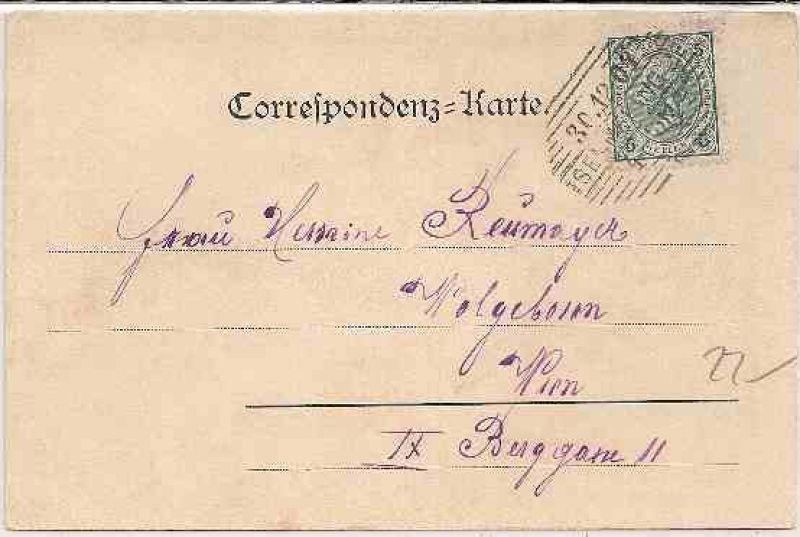 Correspondenz-Karte.
30.12.01
5 5
Frau Hermine Neumayer
Wolgeborn
Wien
IX Berggasse 11